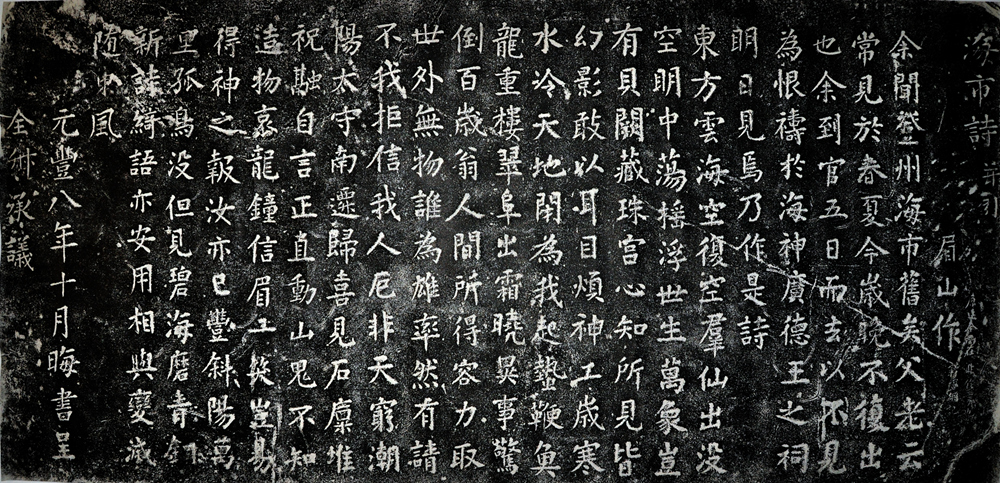 海市詩并引
眉山作
余聞登州海市舊矣父老云
常見於春夏今歲晚不復出
也余到官五日而去以不見
為恨禱於海神廣德王之祠
明日見焉乃作是詩
東方雲海空復空羣仙出沒
空明中蕩摇浮世生萬象豈
有貝闕藏珠宮心知所見皆
幻影敢以耳目煩神工歲寒
水冷天地閉為我起蟄鞭魚
龍重樓翠阜出霜曉異事驚
倒百歲翁人間所得容力取
世外無物誰為雄率然有請
不我拒信我人厄非天窮潮
陽太守南遷歸喜見石廩堆
祝融自言正直動山鬼不知
造物哀龍鐘信眉一笑豈易
得神之報汝亦已豐斜陽萬
里孤鳥没但見碧海磨青銅
新詩綺語亦安用相與變滅
隨東風
元豐八年十月晦書呈
全叔承議